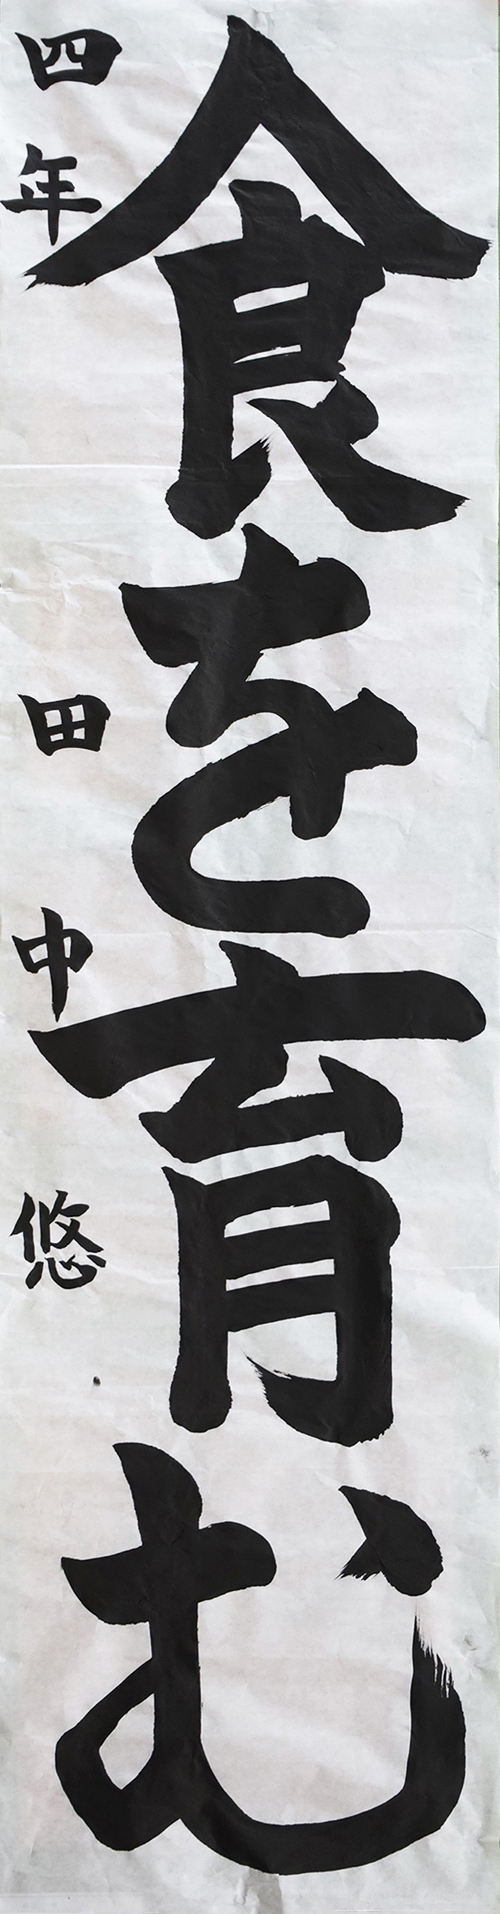 食を育む
四年 田中悠